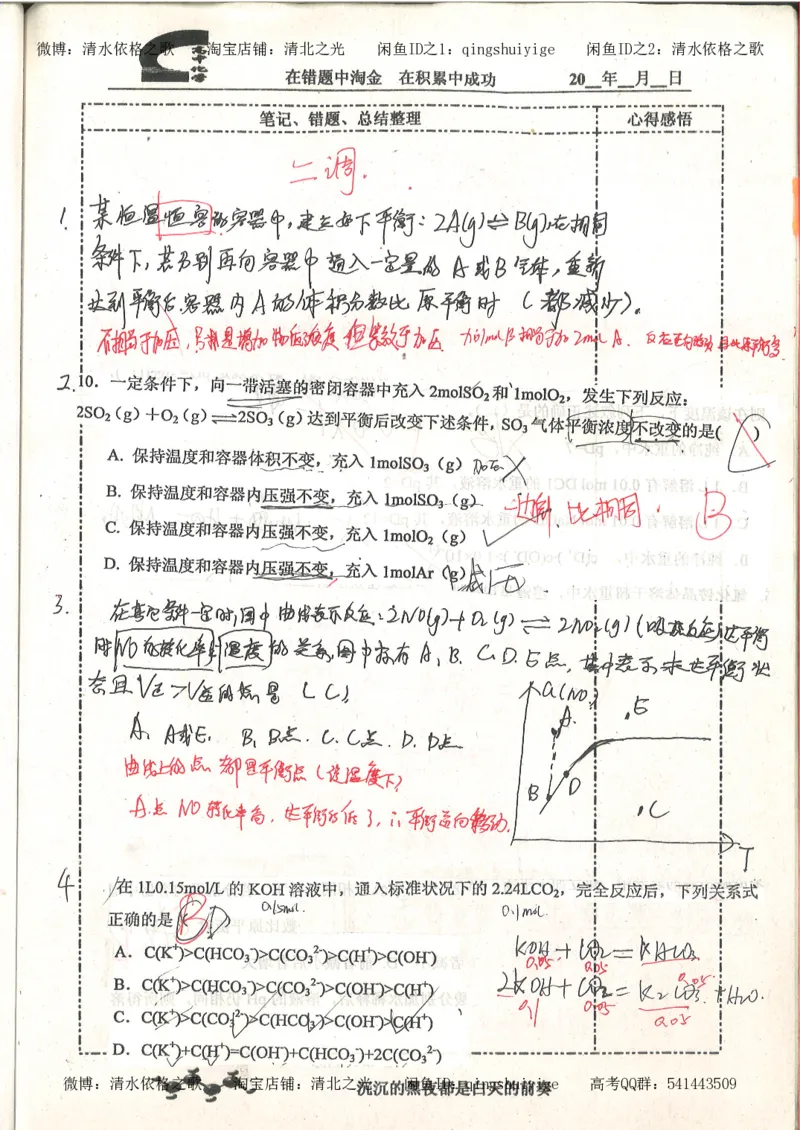 微博：清水依格之歌 淘宝店铺：清北之光 闲鱼ID之1：qingshuiyige 闲鱼ID之2：清水依格之歌
高中化学
在错题中淘金 在积累中成功 20__年__月__日
笔记、错题、总结整理 心得感悟
二调.
1. 某恒温恒容的容器中，建立如下平衡：2A(g)⇌B(g),在相同
条件下，若分别再向容器中通入一定量的A或B气体，重新
达到平衡后.容器内A的体积分数比原平衡时 (都减小)。
不相当于加压，只是增加物质浓度 但等效于加压 加1molB相当于加2molA.
2. 10. 一定条件下，向一带活塞的密闭容器中充入2molSO₂和1molO₂，发生下列反应：
2SO₂(g)＋O₂(g)⇌2SO₃(g)达到平衡后改变下述条件，SO₃气体平衡浓度不改变的是( )
A. 保持温度和容器体积不变，充入1molSO₃（g）加压
B. 保持温度和容器内压强不变，充入1molSO₃（g）
一边倒 比相同. B
C. 保持温度和容器内压强不变，充入1molO₂（g）
D. 保持温度和容器内压强不变，充入1molAr（g）减压
3. 在其它条件一定时,图中曲线表示反应：2NO(g)+O₂(g)⇌2NO₂(g)(吸热反应)达平衡
时NO的转化率与温度的关系,图中标有A、B、C、D、E点，其中表示未达平衡状
态且V正>V逆的点是 (C)
α(NO)
A
E
B
D
C
T
A. A或E. B. B点. C. C点. D. D点
曲线上的点都是平衡点(该温度下)
A点 NO转化率高，达平衡后低了，∴平衡逆向移动.
4 在1L0.15mol/L的KOH溶液中，通入标准状况下的2.24LCO₂，完全反应后，下列关系式
0.15mol. 0.1mol.
正确的是 (BD)
A．C(K⁺)>C(HCO₃⁻)>C(CO₃²⁻)>C(H⁺)>C(OH⁻)
B．C(K⁺)>C(HCO₃⁻)>C(CO₃²⁻)>C(OH⁻)>C(H⁺)
C．C(K⁺)>C(CO₃²⁻)>C(HCO₃⁻)>C(OH⁻)>C(H⁺)
D．C(K⁺)+C(H⁺)=C(OH⁻)+C(HCO₃⁻)+2C(CO₃²⁻)
KOH+CO₂=KHCO₃
0.05 0.05 0.05
2KOH+CO₂=K₂CO₃+H₂O.
0.1 0.05 0.05
微博：清水依格之歌 淘宝店铺：清北之光 闲鱼ID：qingshuiyige 高考QQ群：541443509
沉沉的黑夜都是白天的前奏